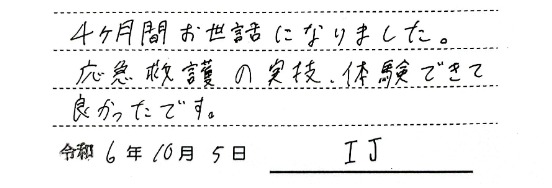 4ヶ月間お世話になりました。
応急救護の実技、体験できて
良かったです。
令和 6年10月5日 IJ